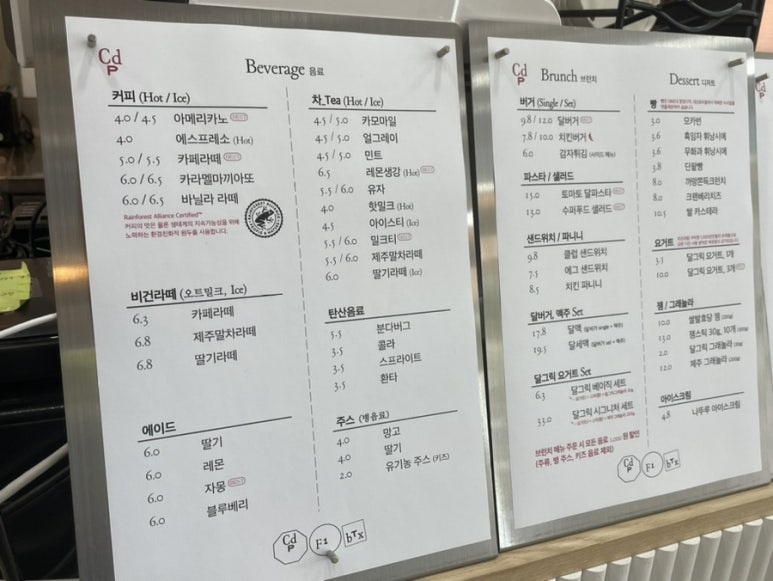 Cd
P
Beverage 음료
커피 (Hot / Ice)
4.0 / 4.5 아메리카노 BEST
4.0 에스프레소 (Hot)
5.0 / 5.5 카페라떼 BEST
6.0 / 6.5 카라멜마끼아또
6.0 / 6.5 바닐라 라떼
Rainforest Alliance Certified™
커피의 맛은 물론 생태계의 지속가능성을 위해
노력하는 환경친화적 원두를 사용합니다.
비건라떼 (오트밀크, Ice)
6.3 카페라떼
6.8 제주말차라떼
6.8 딸기라떼
에이드
6.0 딸기
6.0 레몬
6.0 자몽 BEST
6.0 블루베리
차_Tea (Hot / Ice)
4.5 / 5.0 카모마일
4.5 / 5.0 얼그레이
4.5 / 5.0 민트
6.5 레몬생강 (Hot) BEST
5.5 / 6.0 유자
4.0 핫밀크 (Hot)
4.5 아이스티 (Ice)
5.5 / 6.0 밀크티 BEST
5.5 / 6.0 제주말차라떼
6.0 딸기라떼 (Ice)
탄산음료
5.5 분다버그
3.5 콜라
3.5 스프라이트
3.5 환타
주스 (병음료)
4.0 망고
4.0 딸기
2.0 유기농 주스 (키즈)
Cd
P
F1
bTx
Cd
P
Brunch 브런치
버거 (Single / Set)
9.8 / 12.0 달버거 BEST
7.8 / 10.0 치킨버거
6.0 감자튀김 (사이드 메뉴)
파스타 / 샐러드
15.0 토마토 달파스타 BEST
13.0 수퍼푸드 샐러드 BEST
샌드위치 / 파니니
9.8 클럽 샌드위치
7.5 에그 샌드위치
8.5 치킨 파니니
달버거, 맥주 Set
17.8 달맥 (달버거 single + 맥주)
19.5 달세맥 (달버거 set + 맥주)
달그릭 요거트 Set
6.3 달그릭 베이직 세트
33.0 달그릭 시그니처 세트
브런치 메뉴 주문 시 모든 음료 1,000 원 할인
(주류, 병 주스, 키즈 음료 제외)
Dessert 디저트
빵
3.0 모카번
3.6 흑임자 휘낭시에
3.6 무화과 휘낭시에
3.8 단팥빵
8.0 까망쫀득크런치
8.0 크랜베리치즈
10.5 쌀 카스테라
요거트
3.5 달그릭 요거트, 1개
10.0 달그릭 요거트, 3개
잼 / 그래놀라
10.0 쌀발효당 잼 (200g)
13.0 잼스틱 30g, 10개
2.0 달그릭 그래놀라
12.0 제주 그래놀라
아이스크림
4.8 나뚜루 아이스크림
Cd
P
F1
bTx